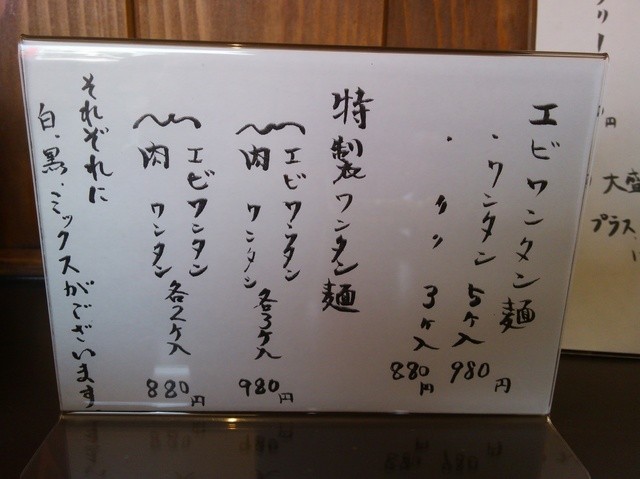 エビワンタン麺
・ワンタン 5ヶ入 980円
・ 〃 3ヶ入 880円
特製ワンタン麺
エビワンタン
肉ワンタン 各3ヶ入 980円
エビワンタン
肉ワンタン 各2ヶ入 880円
それぞれに
白、黒、ミックスがございます。
円
大盛
プラス